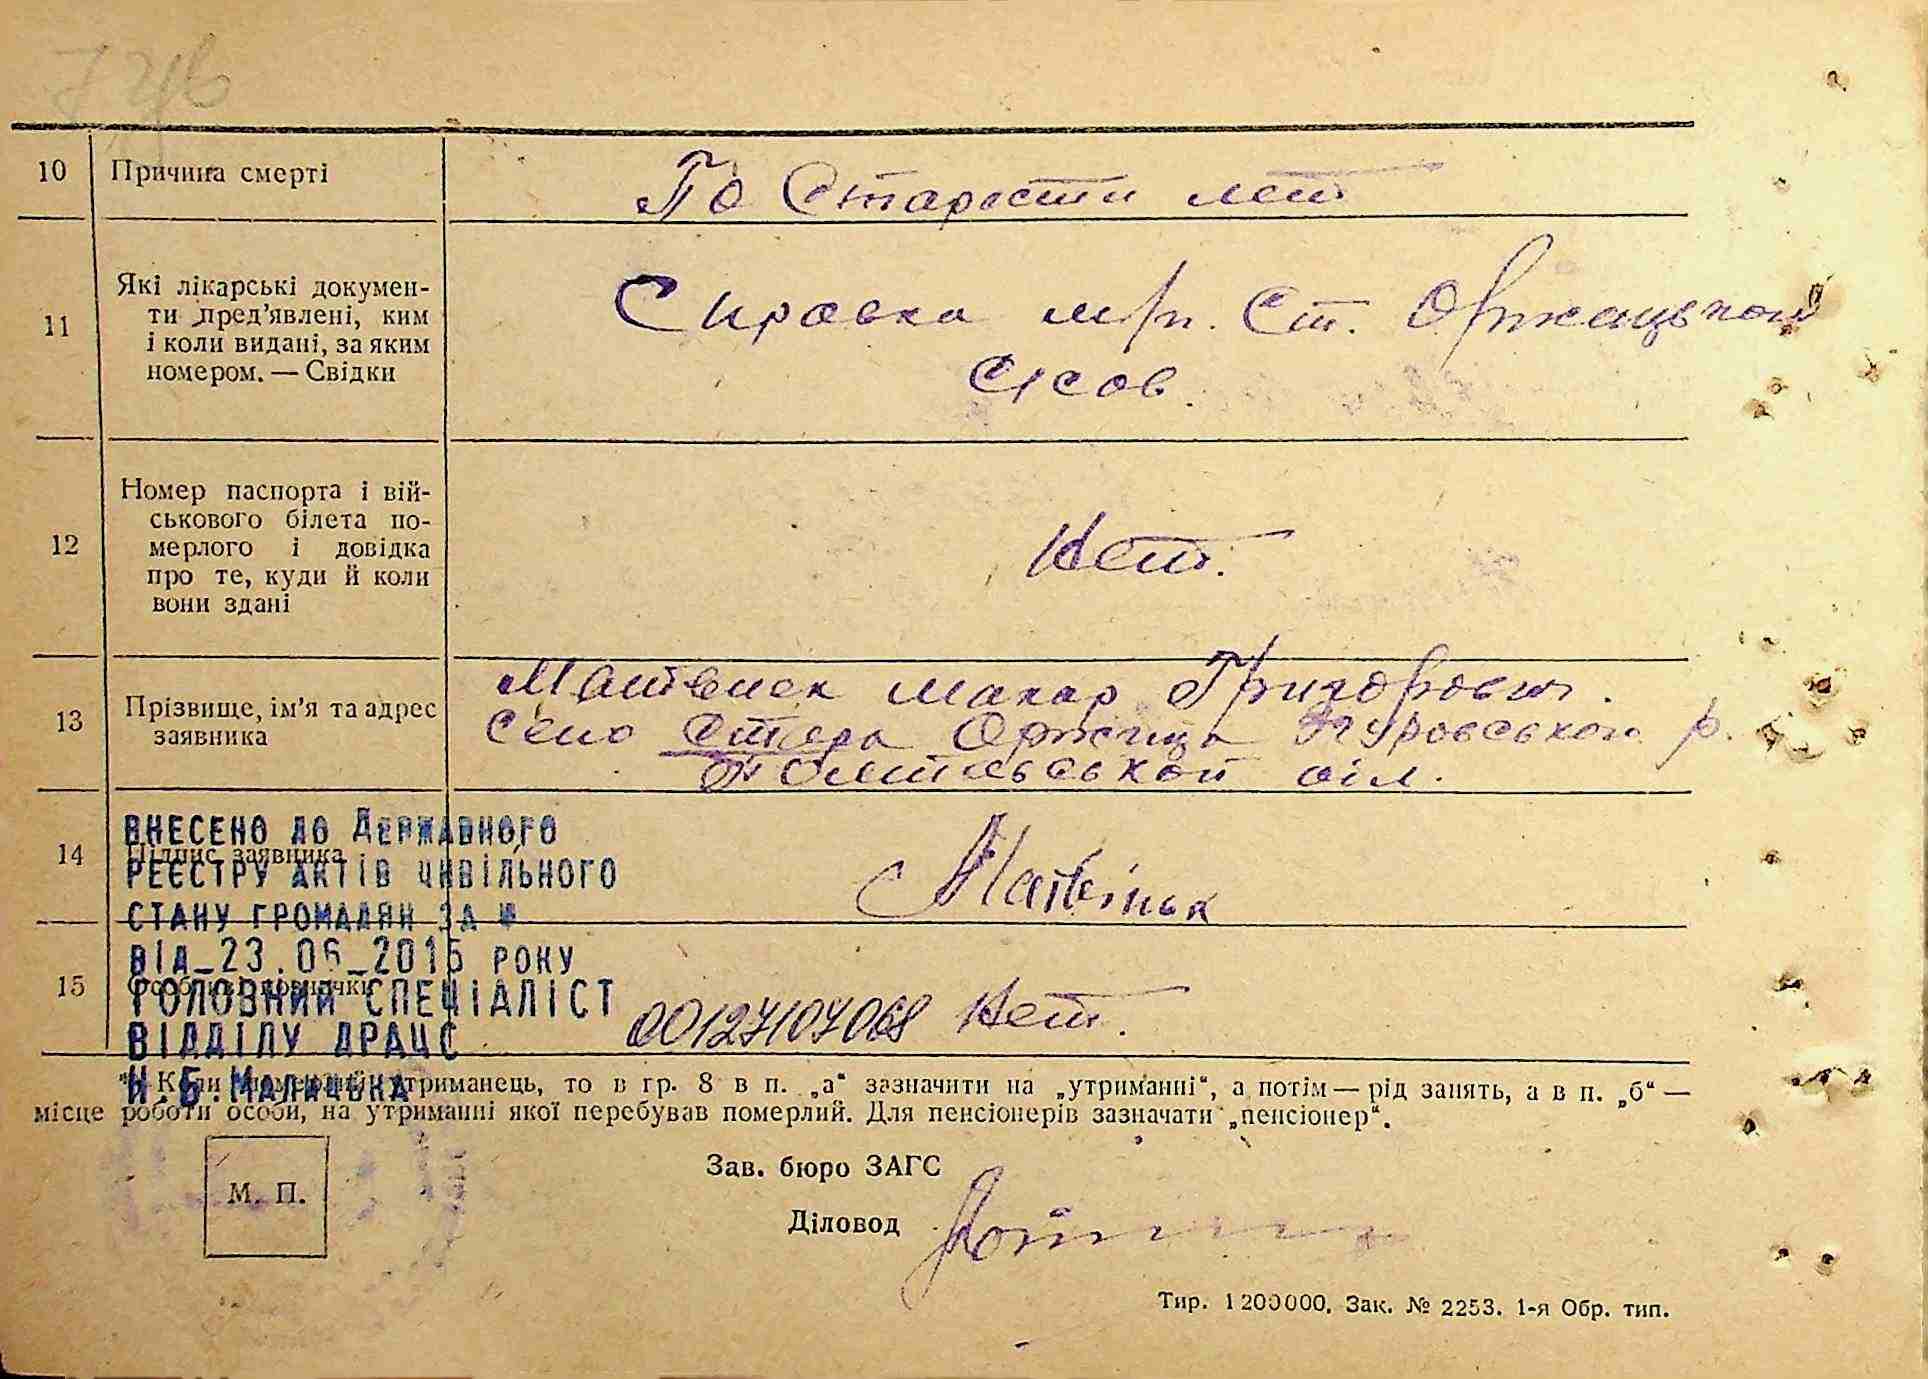 10 Причина смерті
По старости лет
11 Які лікарські докумен-
ти пред’явлені, ким
і коли видані, за яким
номером. — Свідки
Справка м/п. Ст. Оржицькой
с/сов.
12 Номер паспорта і вій-
ськового білета по-
мерлого і довідка
про те, куди й коли
вони здані
Нет.
13 Прізвище, ім’я та адрес
заявника
Макар Григорович.
Село Стара Оржица Згуровськой р.
Полтавськой обл.
14 Підпис заявника
15 Особливі
00127107068 Нет.
ВНЕСЕНО ДО ДЕРЖАВНОГО
РЕЄСТРУ АКТІВ ЦИВІЛЬНОГО
СТАНУ ГРОМАДЯН ЗА №
ВІД_23.06_2015 РОКУ
ГОЛОВНИЙ СПЕЦІАЛІСТ
ВІДДІЛУ ДРАЦС
Н.Б.МАЛАЦЬКА
утриманець, то в гр. 8 в п. „а“ зазначити на „утриманні“, а потім — рід занять, а в п. „б“ —
місце роботи особи, на утриманні якої перебував померлий. Для пенсіонерів зазначати „пенсіонер“.
М. П.
Зав. бюро ЗАГС
Діловод
Тир. 1200000. Зак. № 2253. 1-я Обр. тип.